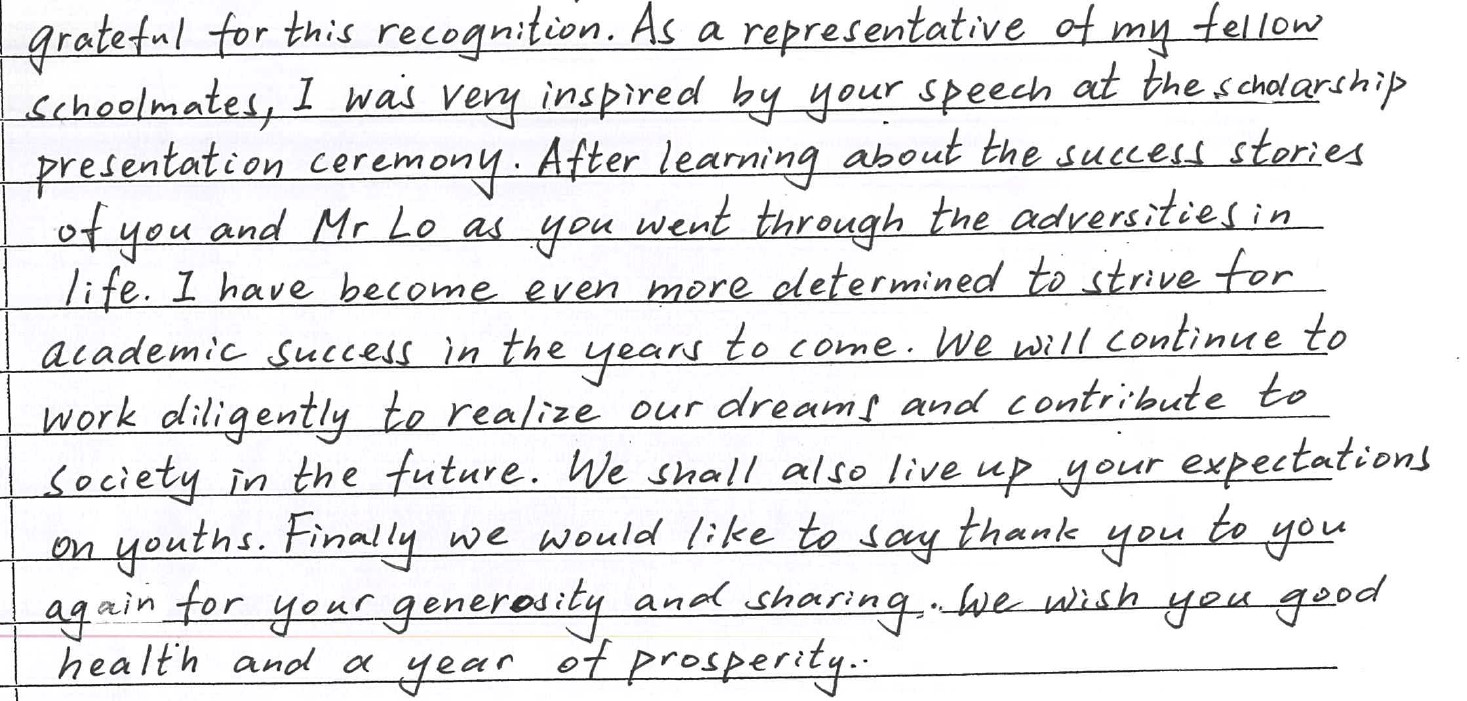 grateful for this recognition. As a representative of my fellow
schoolmates, I was very inspired by your speech at the scholarship
presentation ceremony. After learning about the success stories
of you and Mr Lo as you went through the adversities in
life. I have become even more determined to strive for
academic success in the years to come. We will continue to
work diligently to realize our dreams and contribute to
society in the future. We shall also live up your expectations
on youths. Finally we would like to say thank you to you
again for your generosity and sharing. We wish you good
health and a year of prosperity..